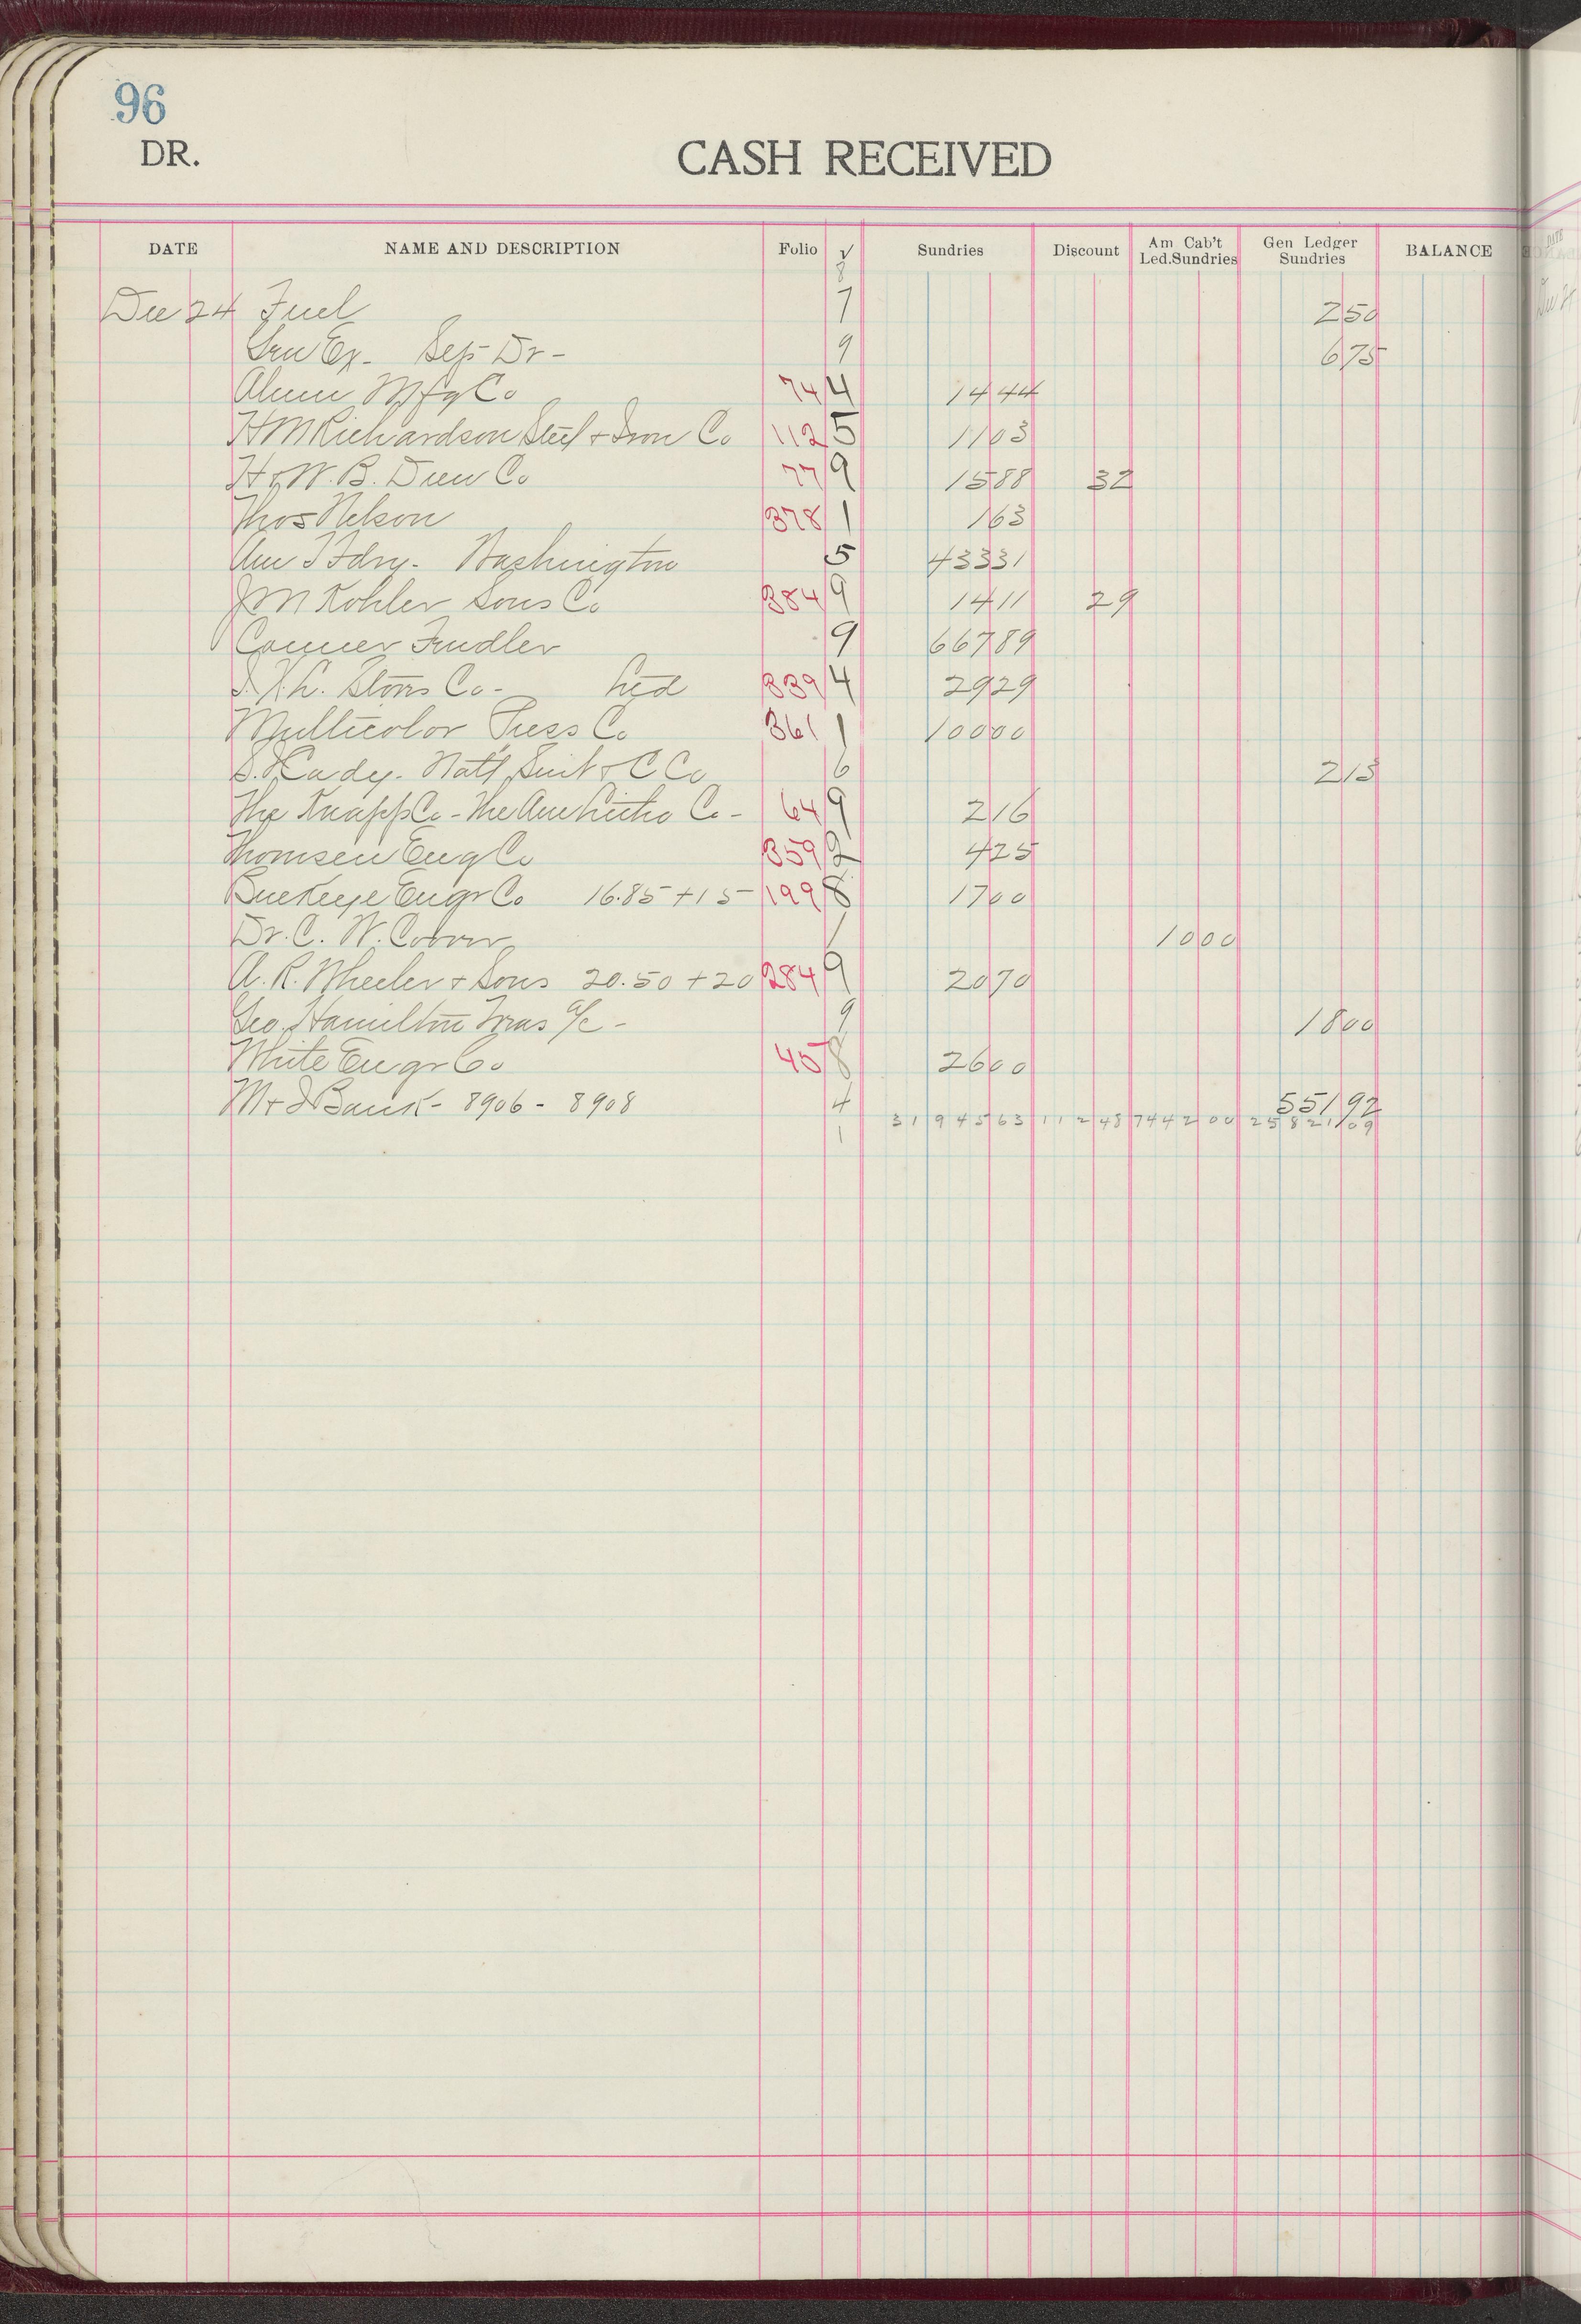 96
DR.
CASH RECEIVED
DATE NAME AND DESCRIPTION Folio √ Sundries Discount Am Cab't Led.Sundries Gen Ledger Sundries BALANCE
8
Dec 24 Fuel 7 2 50
Gen Ex - Sep Dr - 9 6 75
Alum Mfg Co 74 4 14 44
H M Richardson Steel + Iron Co 112 5 11 03
H + W. B. Drew Co 77 9 15 88 32
Thos Nelson 378 1 1 63
Am T Fdry - Washington 5 433 31
J M Kohler Sons Co 384 9 14 11 29
Conner Fendler 9 667 89
Stores Co - Ltd 339 4 29 29
Multicolor Press Co 361 1 100 00
Cady - Nat'l Suit + C Co 6 2 13
The Knapp Co - The Am Litho Co - 64 9 2 16
Thomsen Eng Co 359 2 4 25
Buckeye Engr Co 16.85 + 15 - 199 8 17 00
Dr. C. W. 1 10 00
A. R. Wheeler + Sons 20.50 + 20 284 9 20 70
Geo. Hamilton Tras a/c - 9 18 00
White Engr Co 45 8 26 00
M + I Bank - 8906 - 8908 4 551 92
1 31 945 63 112 48 7442 00 25821 09